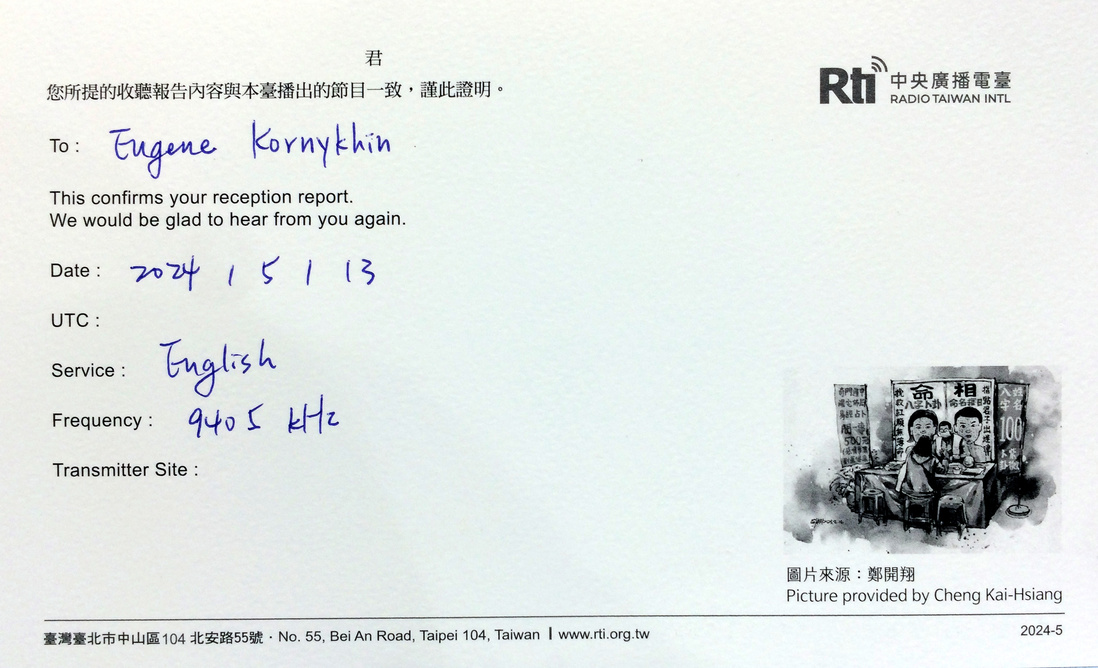 君
您所提的收聽報告內容與本臺播出的節目一致，謹此證明。
Rti 中央廣播電臺
RADIO TAIWAN INTL
To : Eugene Kornykhin
This confirms your reception report.
We would be glad to hear from you again.
Date : 2024 / 5 / 13
UTC :
Service : English
Frequency : 9405 kHz
Transmitter Site :
命 相
八字卜卦
100
圖片來源：鄭開翔
Picture provided by Cheng Kai-Hsiang
臺灣臺北市中山區104 北安路55號・No. 55, Bei An Road, Taipei 104, Taiwan | www.rti.org.tw
2024-5